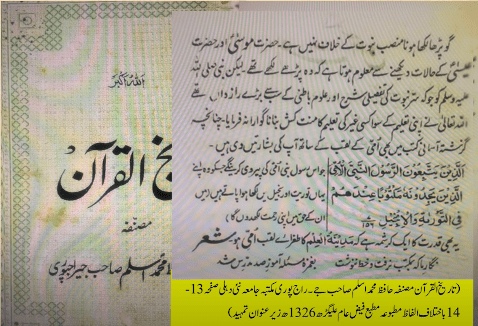 اللہ اکبر
تاریخ القرآن
مصنفہ
محمد اسلم صاحب جیراجپوری
گو پڑھا لکھا ہونا منصب نبوت کے خلاف نہیں ہے۔ حضرت موسیٰ اور حضرت
عیسیٰ کے حالات دیکھنے سے معلوم ہوتا ہے کہ وہ پڑھے لکھے تھے۔ لیکن نبی صلی اللہ
علیہ وسلم کو جو کہ سر نبوت کی تفصیلی شرح اور علوم باطنی کے سب سے بڑے راز داں تھے
اللہ تعالیٰ نے اپنی تعلیم کے سوا کسی غیر کی تعلیم کا منت کش بنانا گوارا نہ فرمایا۔ چنانچہ
گزشتہ آسمانی کتب میں بھی اُمی کے لقب کے ساتھ آپ کی بشارتیں دی ہیں۔
اَلَّذِیْنَ یَتَّبِعُوْنَ الرَّسُوْلَ النَّبِیَّ الْاُمِّیَّ جو اس رسول نبی اُمی کی پیروی کرینگے جسکو وہ اپنے
الَّذِیْ یَجِدُوْنَهٗ مَكْتُوْبًا عِنْدَهُمْ یہاں توریت اور انجیل میں لکھا ہوا پاتے ہیں (میں
فِی التَّوْرٰىةِ وَالْاِنْجِیْلِ ان کے حق میں اپنی رحمت لکھدوں گا)
یہ بھی قدرت کا ایک کرشمہ ہے کہ مدینۃ العلم کا طغرائے لقب اُمی ہو شعر
نگار ما کہ بمکتب نرفت و خط ننوشت بغمزہ مسئلہ آموز صد مدرس شد
(تاریخ القرآن مصنفہ حافظ محمد اسلم صاحب جے۔ راج پوری مکتبہ جامعہ نئی دہلی صفحہ 13-
14 باختلاف الفاظ مطبوعہ مطبع فیض عام علیگڑھ 1326ھ زیر عنوان تمہید)